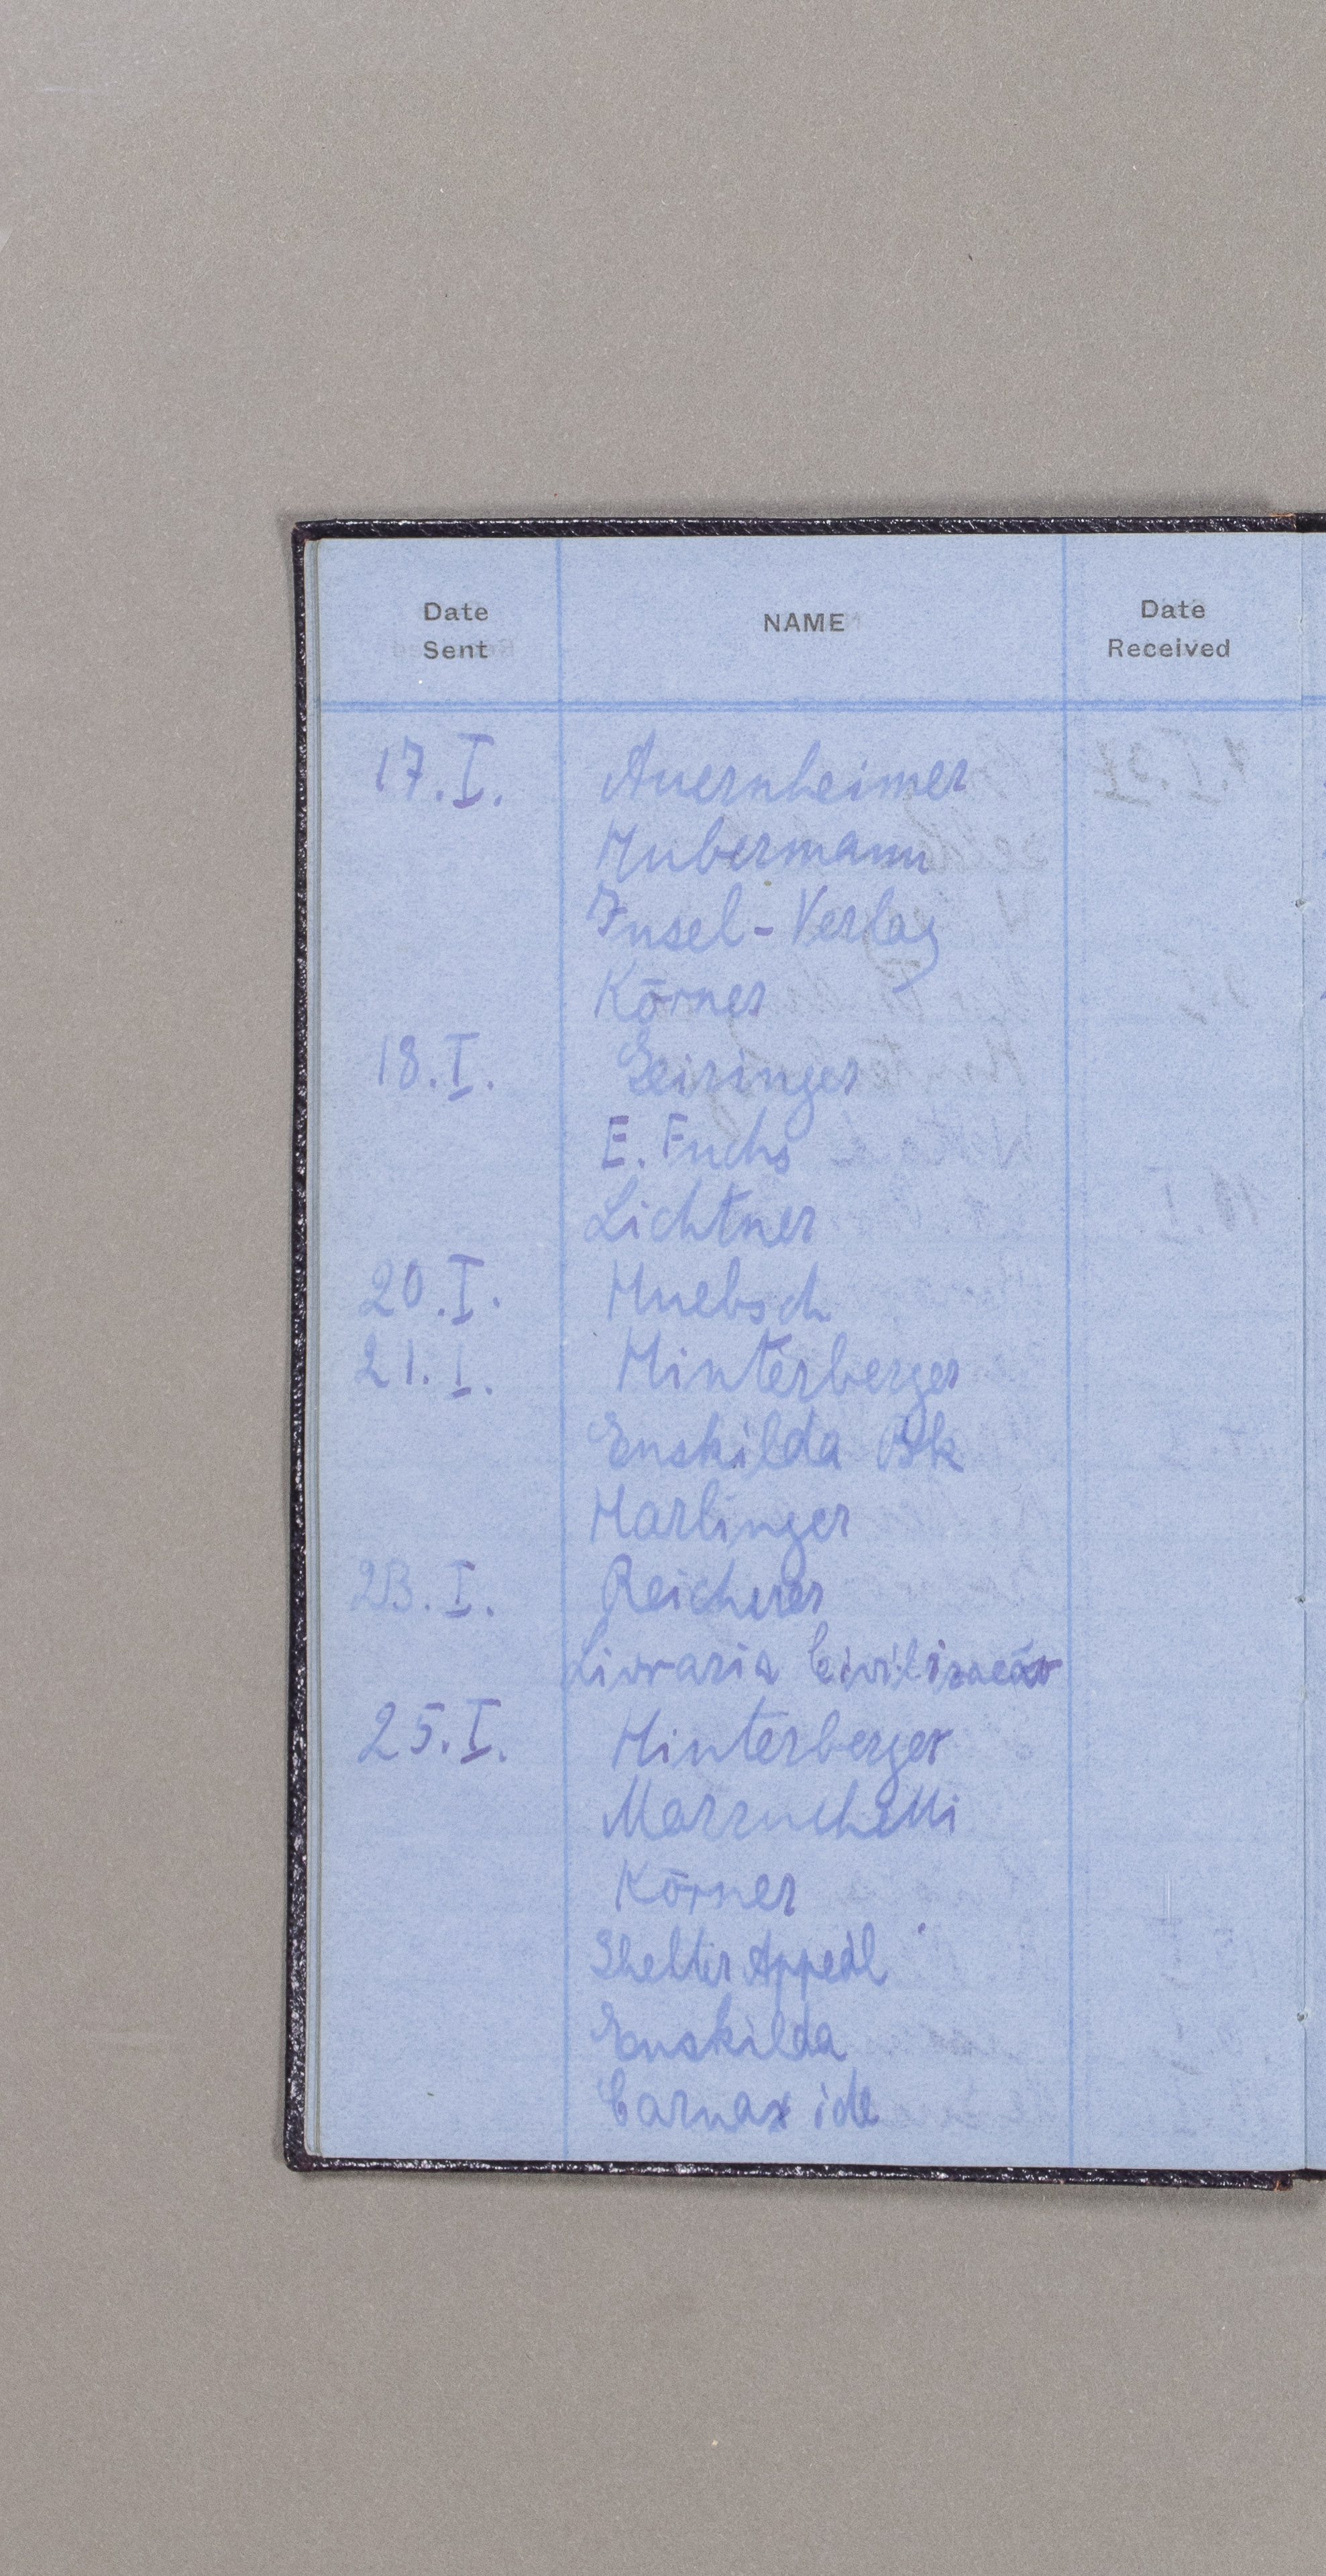 Date Sent NAME Date Received
17.I. Auernheimer
Hubermann
Insel-Verlag
Körner
18.I. Geiringer
E. Fuchs
Lichtner
20.I. Huebsch
21.I. Hinterberger
Enskilda Bk
Harlinger
23.I. Reichner
Livraria Civilizacão
25.I. Hinterberger
Mazzuchetti
Körner
Shelter Appeal
Enskilda
Carnaxide